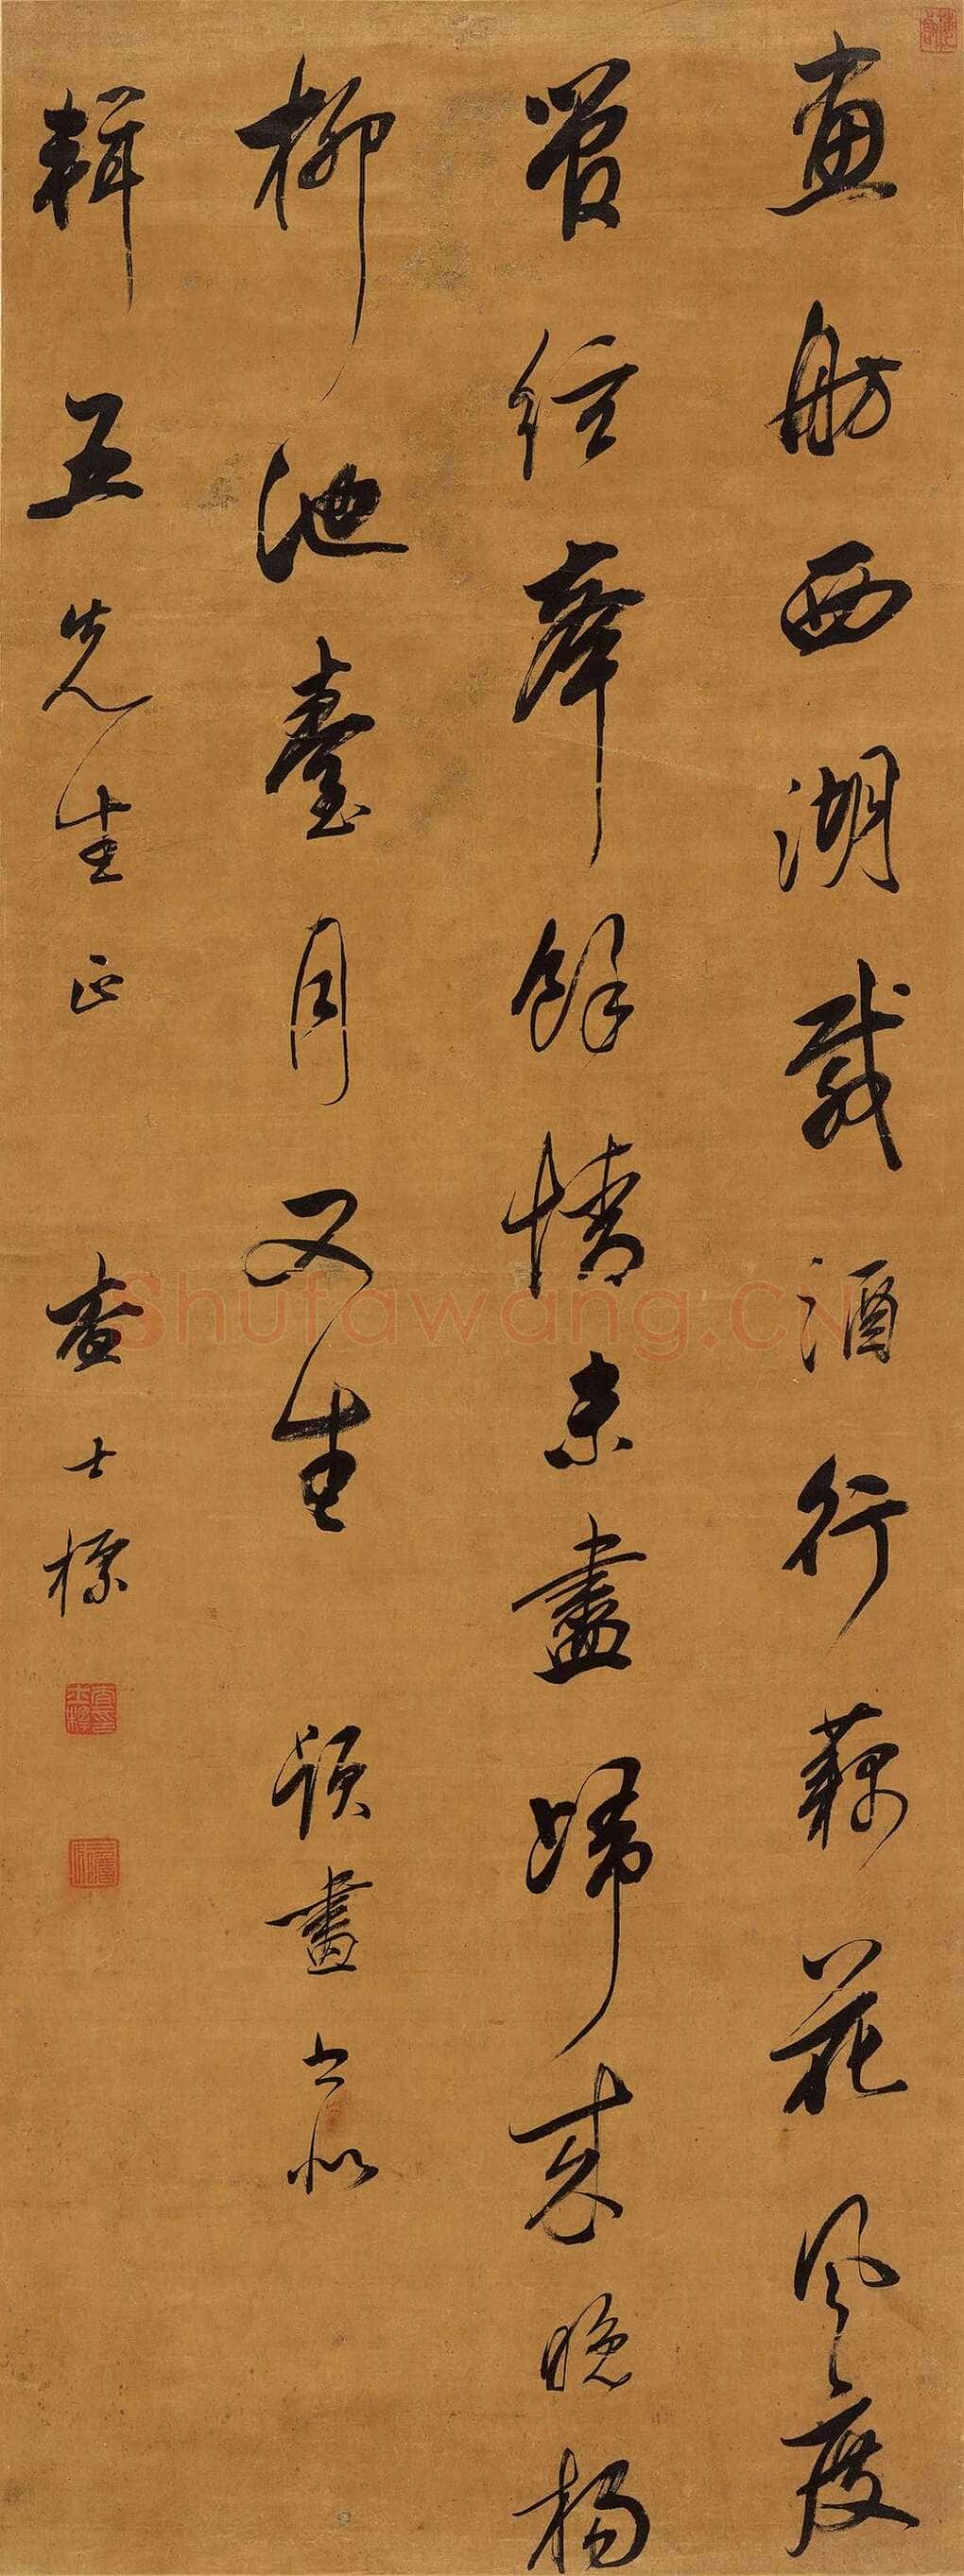 畫舫西湖載酒行藕花風度
管絃聲餘情未盡歸來晚楊
柳池臺月又生 題畫書似
輯五先生正 查士標
Shufawang.CN